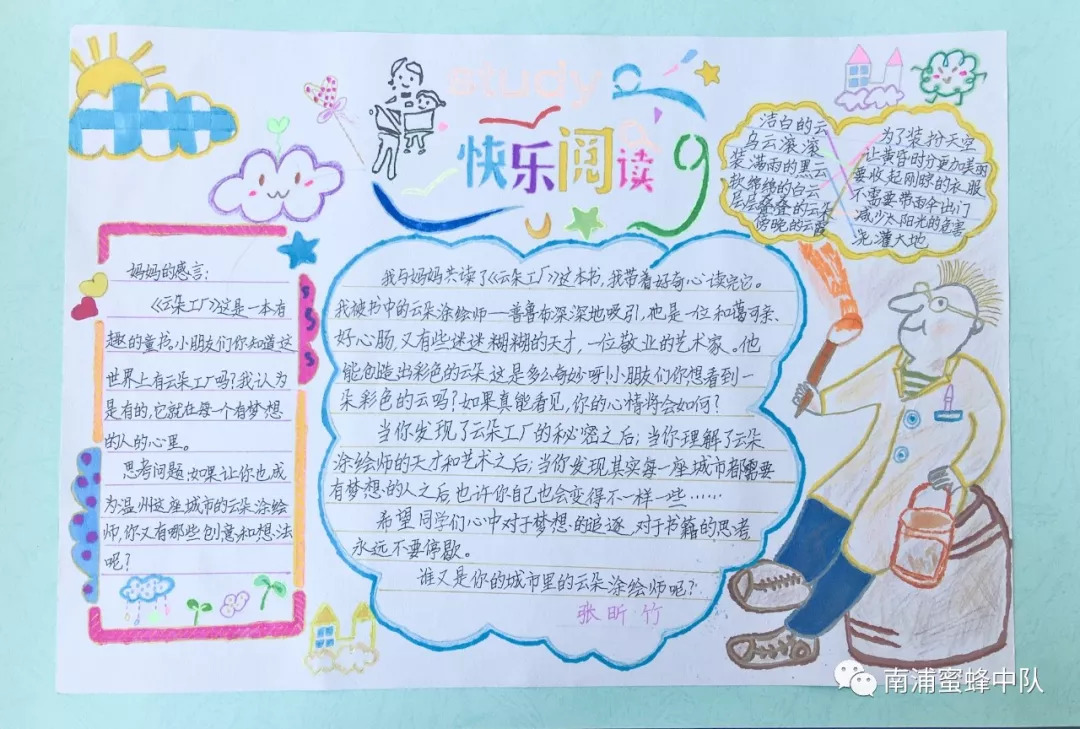 study
快乐阅读
洁白的云
乌云滚滚
装满雨的黑云
软绵绵的白云
层层叠叠的云朵
傍晚的云霞
为了装扮天空
让黄昏时分更加美丽
要收起刚晾的衣服
不需要带雨伞出门
减少太阳光的危害
浇灌大地
妈妈的感言：
《云朵工厂》这是一本有
趣的童书。小朋友们你知道这
世界上有云朵工厂吗？我认为
是有的，它就在每个有梦想
的人的心里。
思考问题：如果让你也成
为温州这座城市的云朵涂绘
师，你又有哪些创意和想法
呢？
我与妈妈共读了《云朵工厂》这本书，我带着好奇心读完它。
我被书中的云朵涂绘师——普鲁布深深地吸引，他是一位和蔼可亲、
好心肠，又有些迷迷糊糊的天才，一位敬业的艺术家。他
能创造出彩色的云朵，这是多么奇妙呀！小朋友们你想看到一
朵彩色的云吗？如果真能看见，你的心情将会如何？
当你发现了云朵工厂的秘密之后；当你理解了云朵
涂绘师的天才和艺术之后；当你发现其实每一座城市都需要
有梦想的人之后，也许你自己也会变得不一样一些……
希望同学们心中对于梦想的追逐，对于书籍的思考
永远不要停歇。
谁又是你的城市里的云朵涂绘师呢？
张昕竹
南浦蜜蜂中队